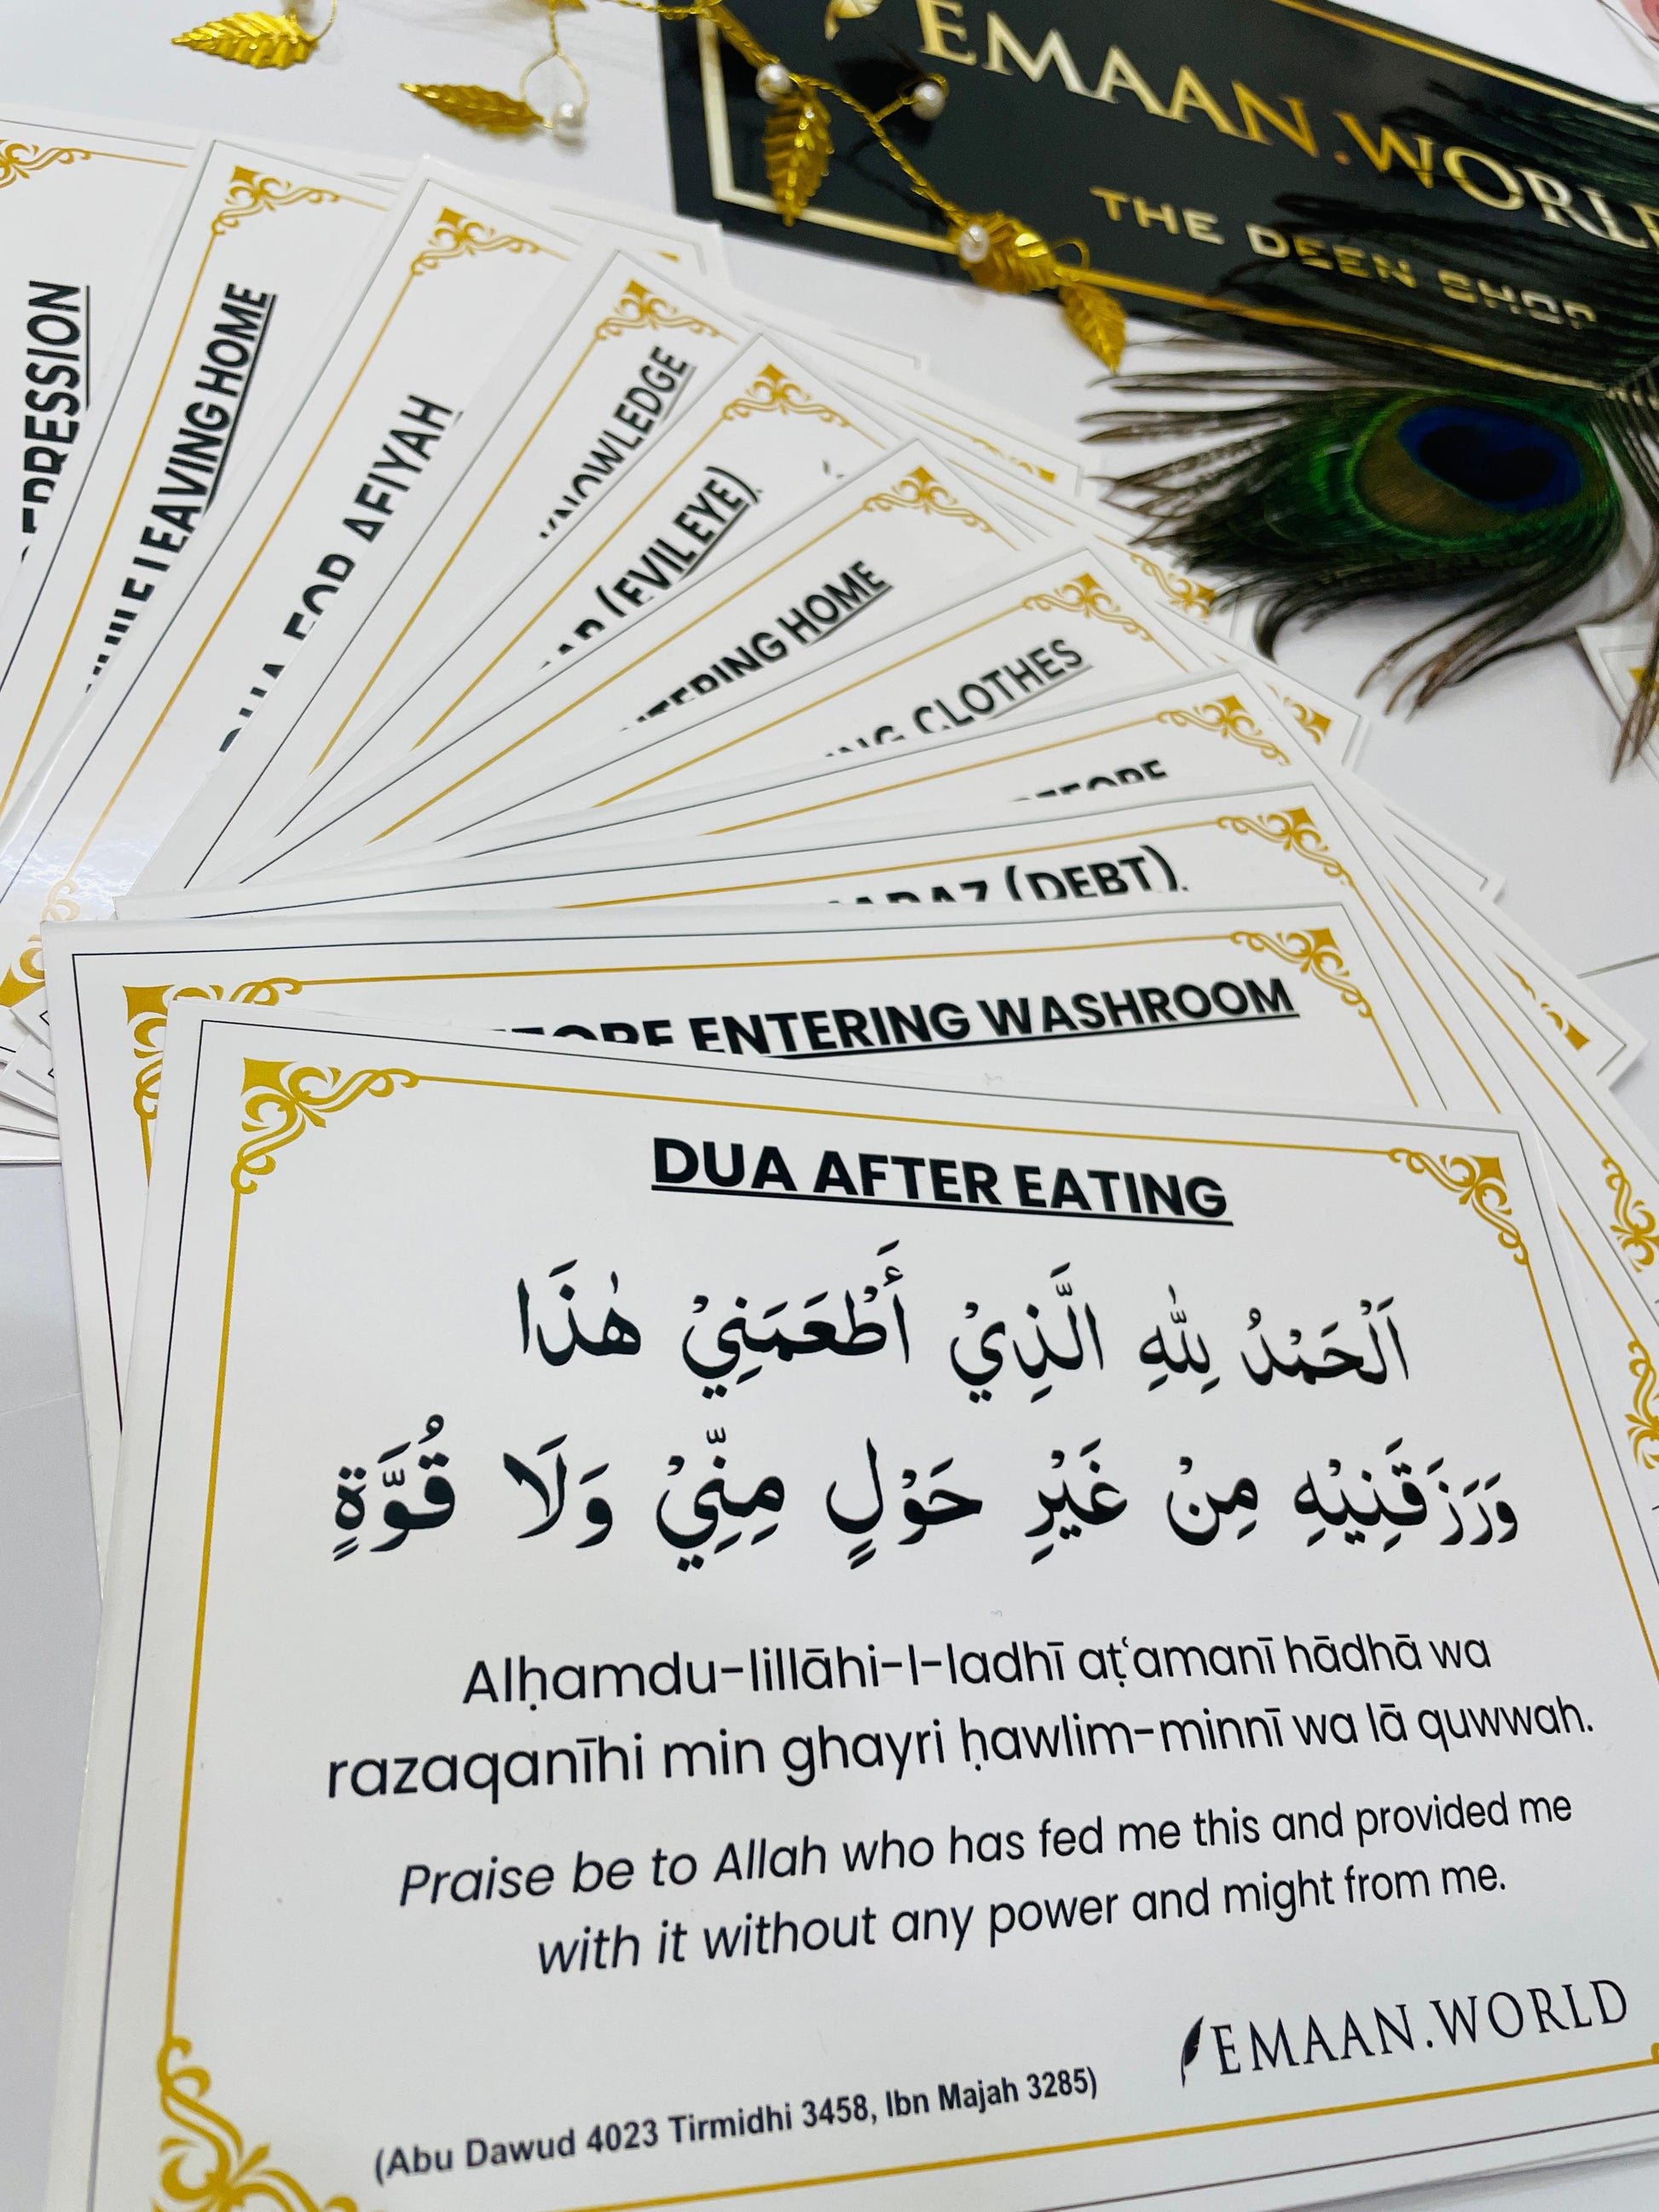 EMAAN.WORLD
THE DEEN SHOP
LEAVING HOME
DUA FOR AFIYAH
KNOWLEDGE
(EVIL EYE)
HOME
CLOTHES
(DEBT)
ENTERING WASHROOM
DUA AFTER EATING
اَلْحَمْدُ لِلّٰهِ الَّذِيْ أَطْعَمَنِيْ هٰذَا
وَرَزَقَنِيْهِ مِنْ غَيْرِ حَوْلٍ مِنِّيْ وَلَا قُوَّةٍ
Alḥamdu-lillāhi-l-ladhī aṭʿamanī hādhā wa
razaqanīhi min ghayri ḥawlim-minnī wa lā quwwah.
Praise be to Allah who has fed me this and provided me
with it without any power and might from me.
EMAAN.WORLD
(Abu Dawud 4023 Tirmidhi 3458, Ibn Majah 3285)